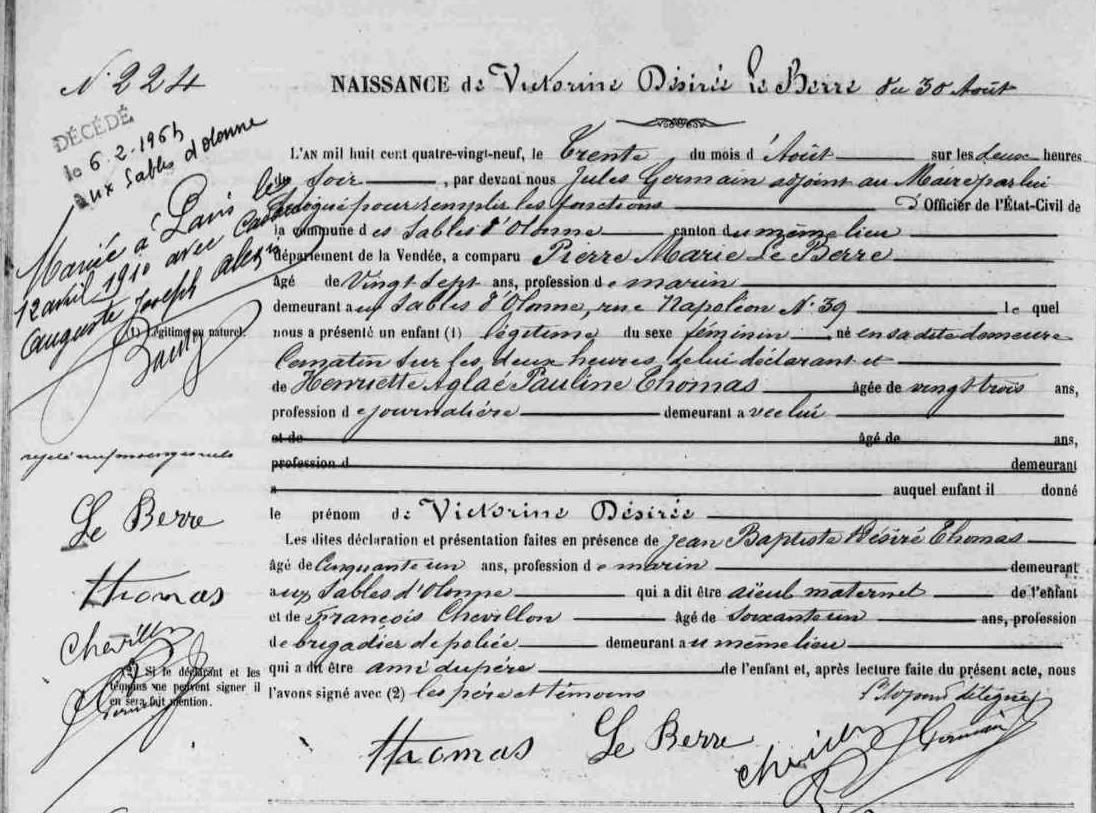 N° 224
NAISSANCE de Victorine Désirée Le Berre du 30 Août
DÉCÉDÉ
le 6.2.1964
aux Sables d'olonne
Mariée à Paris le
12 avril 1910 avec
Auguste Joseph
L'AN mil huit cent quatre-vingt-neuf, le Trente du mois d'Août sur les deux heures
du Soir, par devant nous Jules Germain adjoint au Maire par lui
délégué pour remplir les fonctions d'Officier de l'État-Civil de
la commune des Sables d'Olonne canton du même lieu
département de la Vendée, a comparu Pierre Marie Le Berre
âgé de Vingt Sept ans, profession de marin
demeurant aux Sables d'Olonne, rue Napoléon N° 39 le quel
(1) Légitime ou naturel.
nous a présenté un enfant (1) légitime du sexe féminin né en sa dite demeure
Ce matin sur les deux heures, de lui déclarant et
de Henriette Aglaé Pauline Thomas âgée de vingt trois ans,
profession de journalière demeurant avec lui
et de âgé de ans,
profession d demeurant
a auquel enfant il donné
le prénom de Victorine Désirée
Les dites déclaration et présentation faites en présence de Jean Baptiste Désiré Thomas
âgé de Cinquante un ans, profession de marin demeurant
aux Sables d'Olonne qui a dit être aïeul maternel de l'enfant
et de François Chevillon âgé de Soixante un ans, profession
de brigadier de police demeurant au même lieu
qui a dit être ami du père de l'enfant et, après lecture faite du présent acte, nous
l'avons signé avec (2) les père et témoins
Le Berre
Thomas
Chevillon
(2) Si le déclarant et les
témoins ne peuvent signer il
en sera fait mention.
Thomas Le Berre Chevillon J Germain